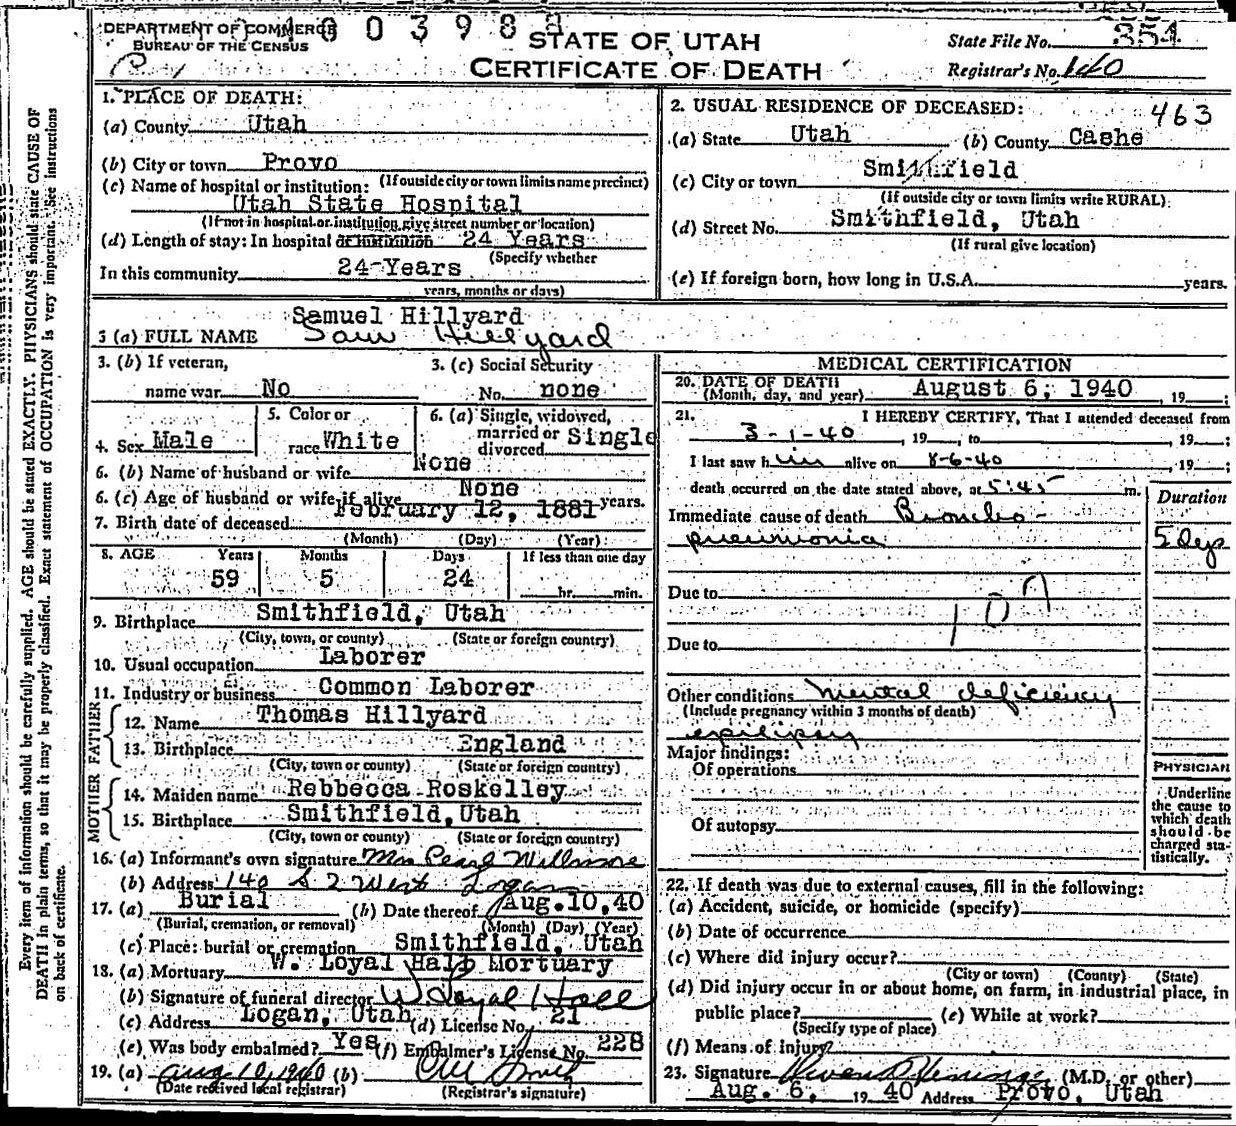 DEPARTMENT OF COMMERCE
BUREAU OF THE CENSUS
003988
STATE OF UTAH
CERTIFICATE OF DEATH
State File No. 354
Registrar's No. 140
1. PLACE OF DEATH:
(a) County Utah
(b) City or town Provo
(If outside city or town limits name precinct)
(c) Name of hospital or institution:
Utah State Hospital
(If not in hospital or institution give street number or location)
(d) Length of stay: In hospital or institution 24 Years
(Specify whether
In this community 24-Years
years, months or days)
2. USUAL RESIDENCE OF DECEASED:
463
(a) State Utah (b) County Cashe
(c) City or town Smithfield
(If outside city or town limits write RURAL)
(d) Street No. Smithfield, Utah
(If rural give location)
(e) If foreign born, how long in U.S.A. years.
Samuel Hillyard
3 (a) FULL NAME Sam Hillyard
3. (b) If veteran,
name war No
3. (c) Social Security
No. none
4. Sex Male
5. Color or
race White
6. (a) Single, widowed,
married or
divorced Single
6. (b) Name of husband or wife None
6. (c) Age of husband or wife if alive None years.
7. Birth date of deceased February 12, 1881
(Month) (Day) (Year)
8. AGE Years Months Days If less than one day
59 5 24 hr. min.
9. Birthplace Smithfield, Utah
(City, town, or county) (State or foreign country)
10. Usual occupation Laborer
11. Industry or business Common Laborer
FATHER
12. Name Thomas Hillyard
13. Birthplace England
(City, town or county) (State or foreign country)
MOTHER
14. Maiden name Rebbecca Roskelley
15. Birthplace Smithfield, Utah
(City, town or county) (State or foreign country)
16. (a) Informant's own signature Mrs Pearl Willmore
(b) Address 140 S 2 West Logan
17. (a) Burial (b) Date thereof Aug. 10, 40
(Burial, cremation, or removal) (Month) (Day) (Year)
(c) Place: burial or cremation Smithfield, Utah
18. (a) Mortuary W. Loyal Hall Mortuary
(b) Signature of funeral director W. Loyal Hall
(c) Address Logan, Utah (d) License No. 21
(e) Was body embalmed? Yes (f) Embalmer's License No. 228
19. (a) Aug 10, 1940 (b) Smith
(Date received local registrar) (Registrar's signature)
MEDICAL CERTIFICATION
20. DATE OF DEATH
(Month, day, and year) August 6, 1940, 19 ;
21. I HEREBY CERTIFY, That I attended deceased from
3-1-40, 19 , to , 19 ;
I last saw him alive on 8-6-40, 19 ;
death occurred on the date stated above, at 5:45 m.
Duration
Immediate cause of death Broncho-
pneumonia 5 dys
Due to 107
Due to
Other conditions mental deficiency
(Include pregnancy within 3 months of death)
epilipsy
Major findings:
Of operations
Of autopsy
PHYSICIAN
Underline
the cause to
which death
should be
charged sta-
tistically.
22. If death was due to external causes, fill in the following:
(a) Accident, suicide, or homicide (specify)
(b) Date of occurrence
(c) Where did injury occur?
(City or town) (County) (State)
(d) Did injury occur in or about home, on farm, in industrial place, in
public place? (e) While at work?
(Specify type of place)
(f) Means of injury
23. Signature (M.D. or other)
Aug. 6, 19 40 Address Provo, Utah
Every item of information should be carefully supplied. AGE should be stated EXACTLY. PHYSICIANS should state CAUSE OF
DEATH in plain terms, so that it may be properly classified. Exact statement of OCCUPATION is very important. See instructions
on back of certificate.